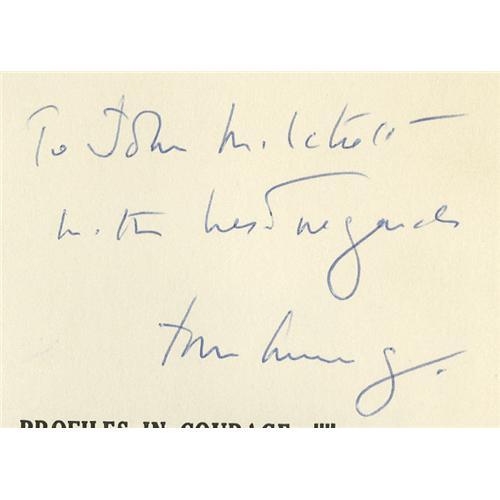 To John Mitchell
with best regards
John Kennedy
PROFILES IN COURAGE